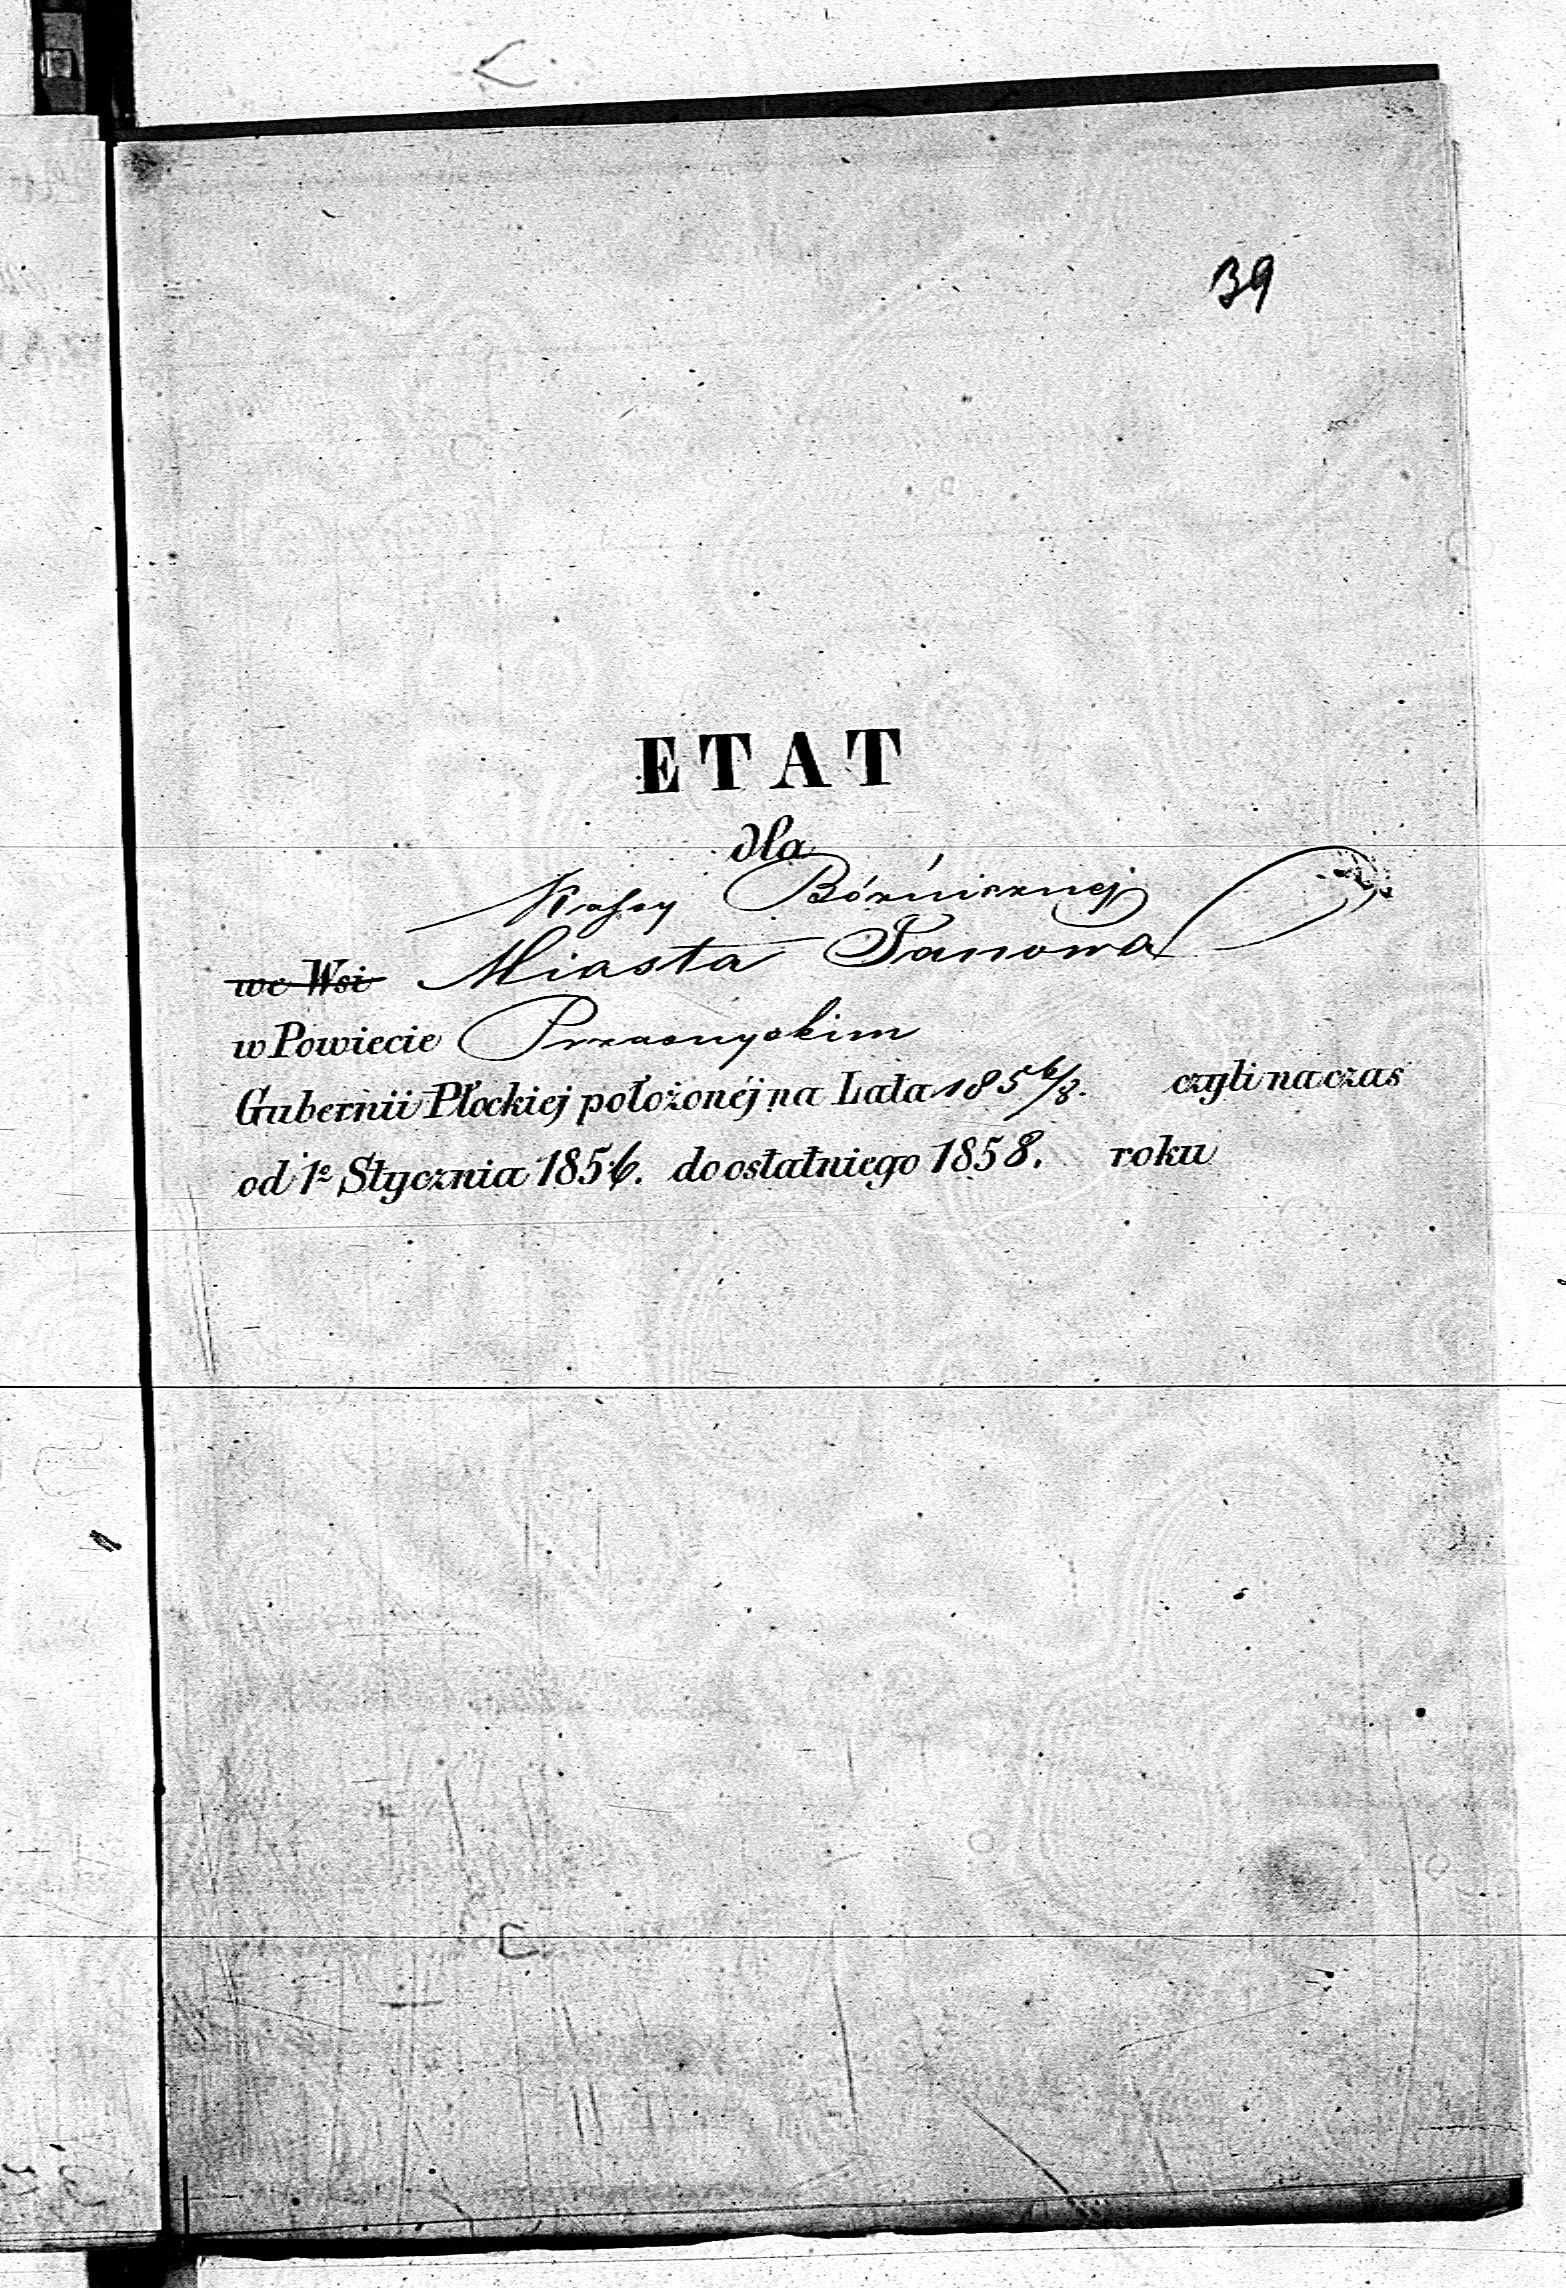 39
ETAT
dla
Kassy Bóźnicznej
we Wsi Miasta Janowa
w Powiecie Przasnyskim
Gubernii Płockiej położonéj na Lata 1856/8. czyli na czas
od 1º Stycznia 1856. do ostatniego 1858. roku